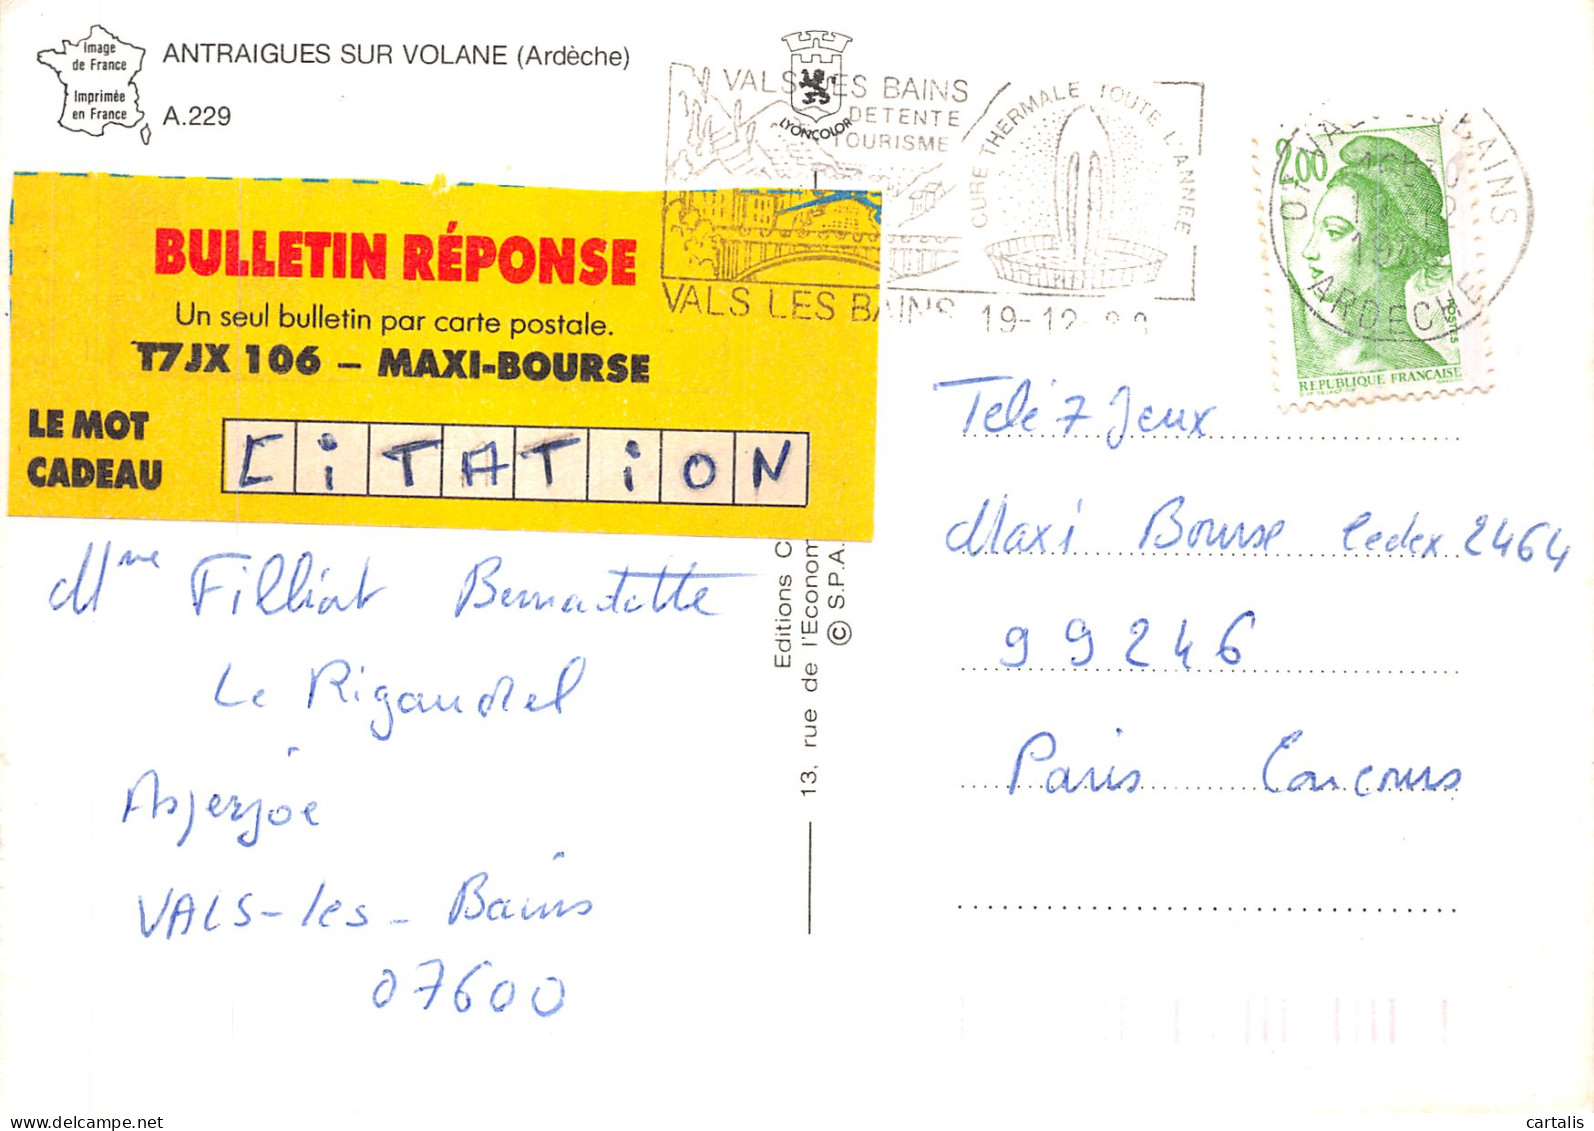 Image
de France
Imprimée
en France
ANTRAIGUES SUR VOLANE (Ardèche)
A.229
LYONCOLOR
VALS LES BAINS
DETENTE
TOURISME
CURE THERMALE TOUTE L'ANNEE
VALS LES BAINS 19-12-
BAINS
ARDECHE
2,00
POSTES
REPUBLIQUE FRANÇAISE
BULLETIN RÉPONSE
Un seul bulletin par carte postale.
T7JX 106 – MAXI-BOURSE
LE MOT
CADEAU
CiTATiON
Mme Filliat Bernadette
Le Rigaudel
Asperjoc
VALS-les-Bains
07600
Editions C
13, rue de l'Econom
© S.P.A.
Télé 7 Jeux
Maxi Bourse Cedex 2464
99246
Paris Concours
cartalis